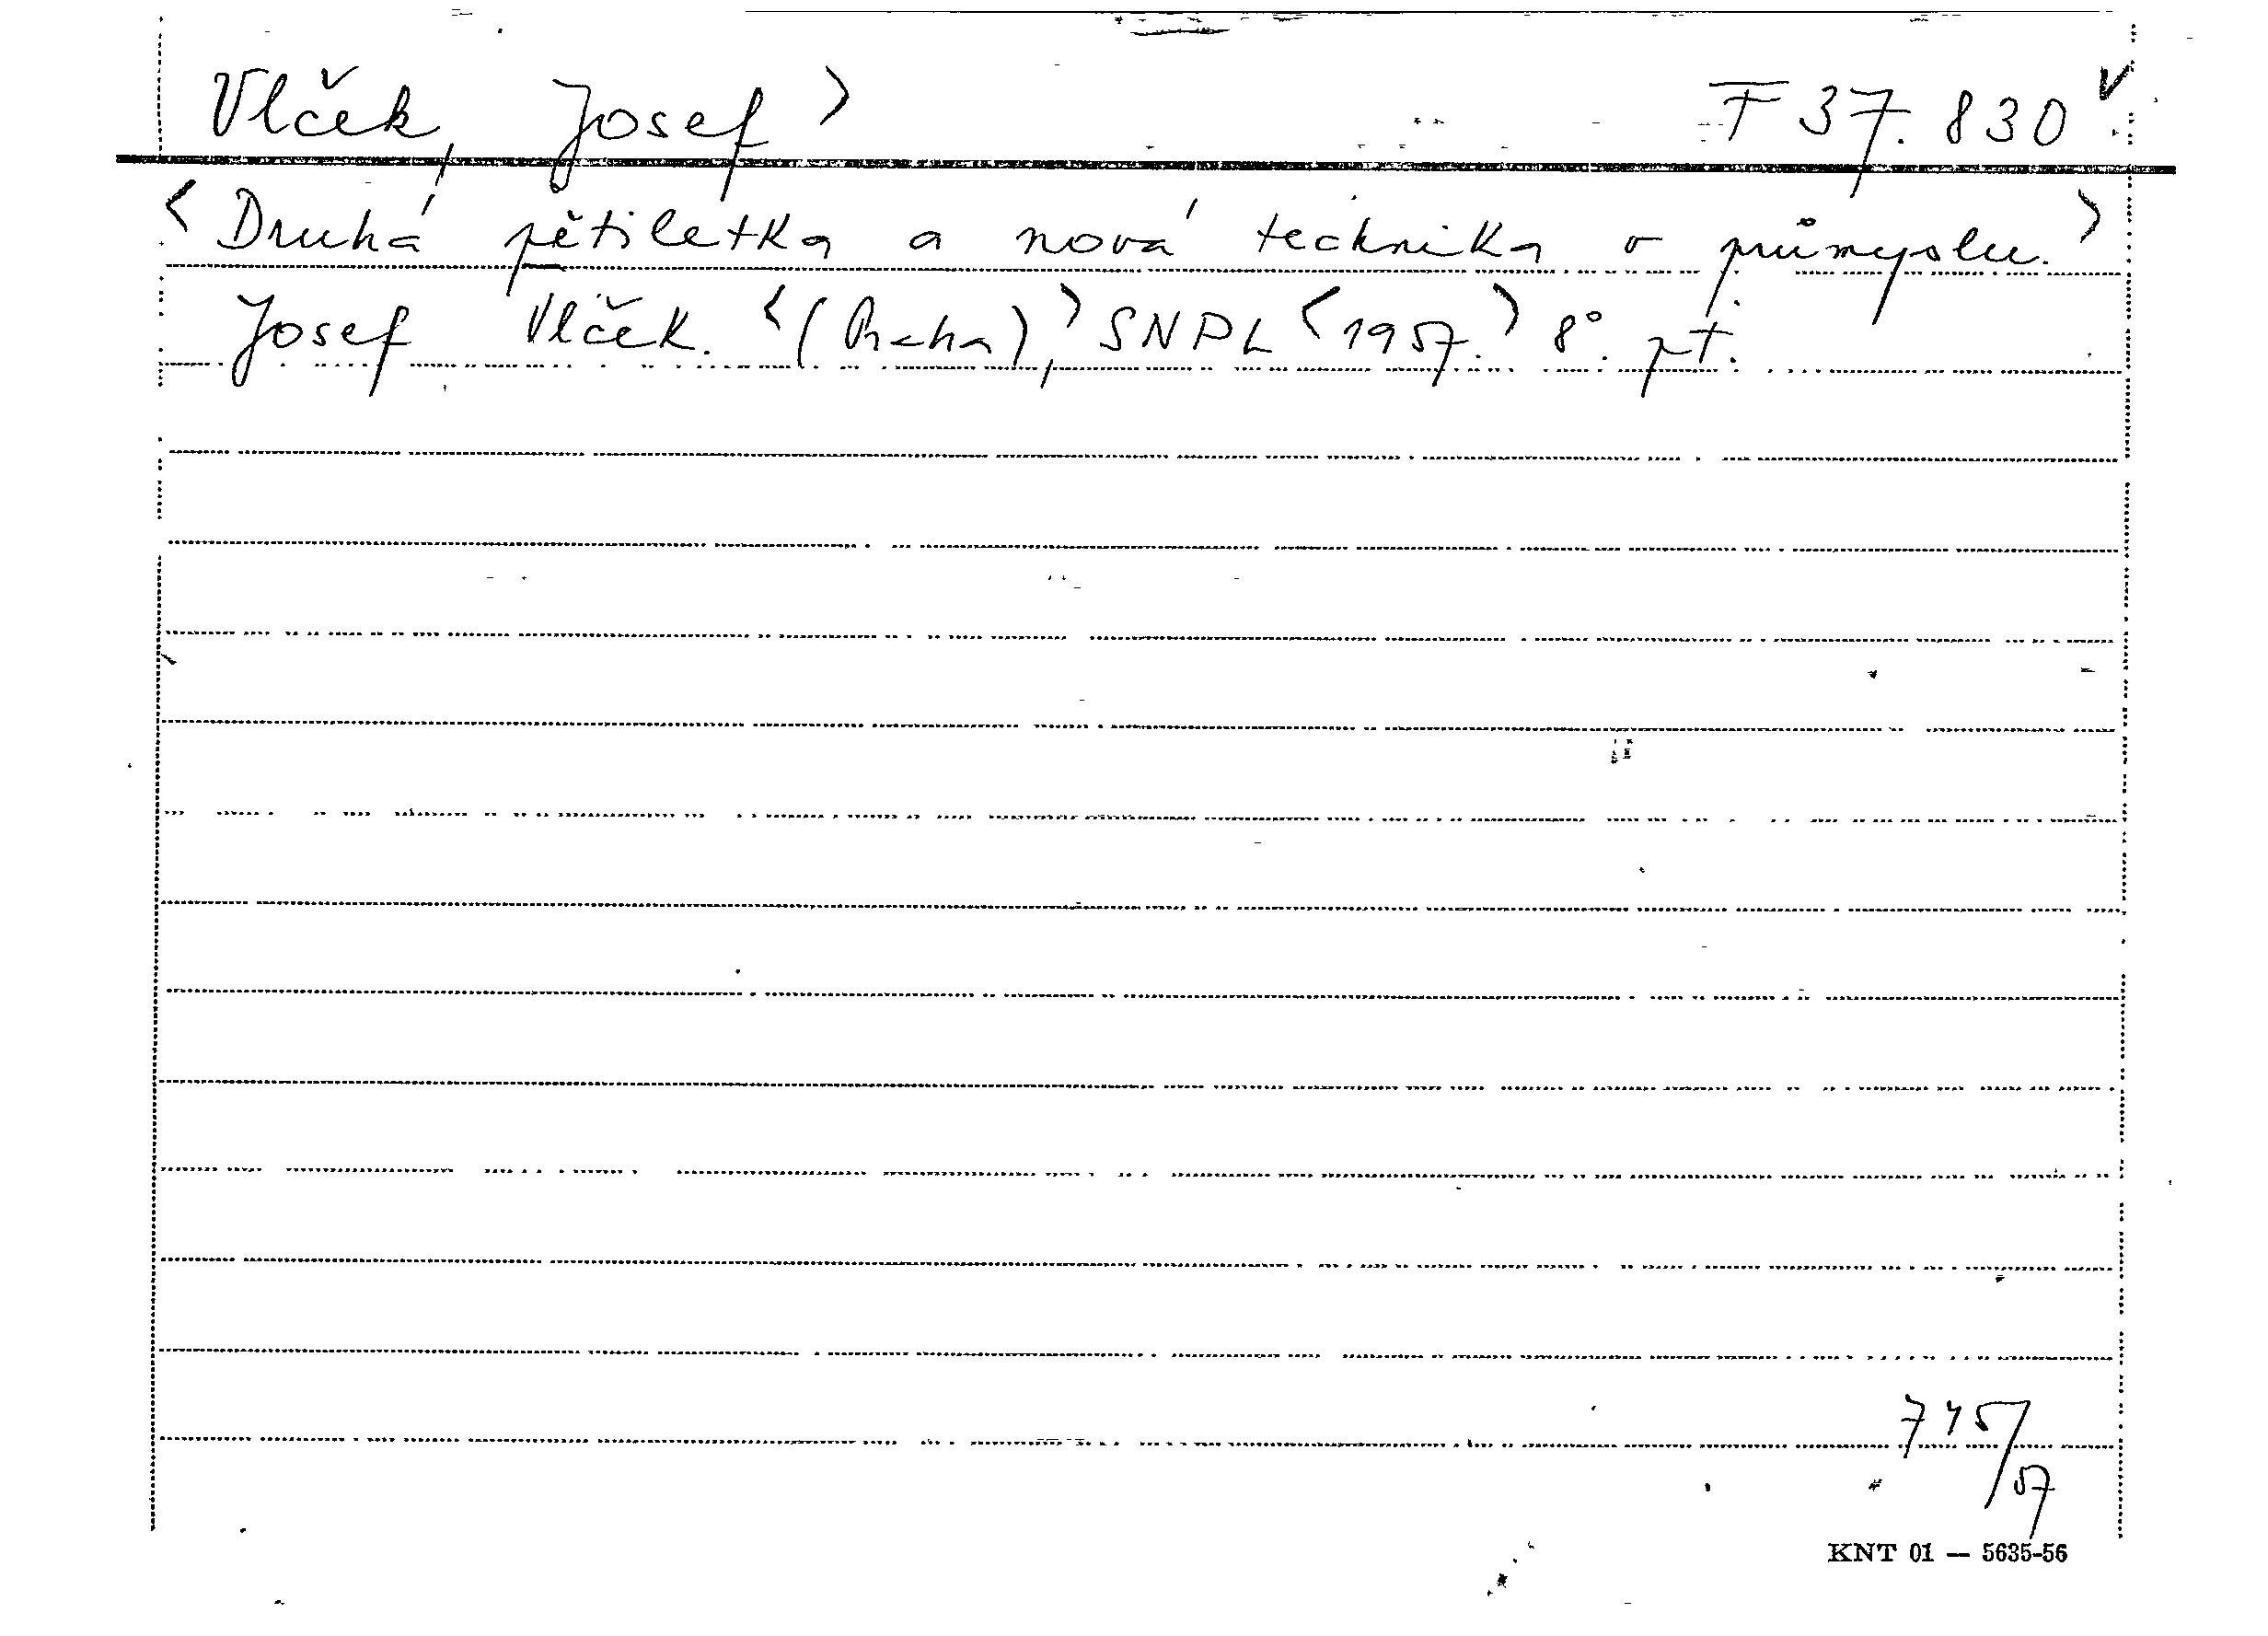 Vlček, Josef > F 37.830 v
<Druhá pětiletka a nová technika v průmyslu.>
Josef Vlček. <(Praha),> SNPL <1957.> 8°. pt.
745/57
KNT 01 — 5635-56